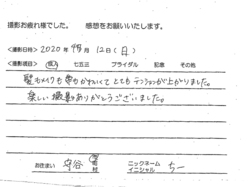 撮影お疲れ様でした。 感想をお願いいたします。
<撮影日時> 2020年 9月 12日(日)
<撮影項目> 個人 七五三 ブライダル 記念 その他
髪もメイクも かわいくて とても テンションが上がりました。
楽しい撮影ありがとうございました。
お住まい 守谷 市 ニックネーム イニシャル ちー